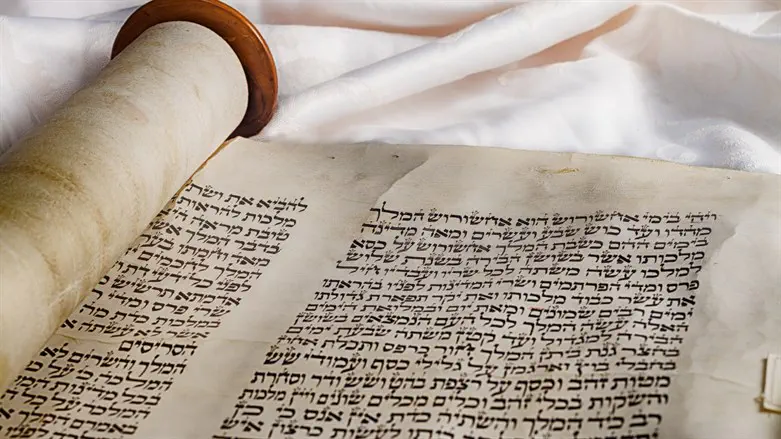 ויהי בימי אחשורוש הוא אחשורוש המלך
מהדו ועד כוש שבע ועשרים ומאה מדינה
בימים ההם כשבת המלך אחשורוש על כסא
מלכותו אשר בשושן הבירה בשנת שלוש
למלכו עשה משתה לכל שריו ועבדיו חיל
פרס ומדי הפרתמים ושרי המדינות לפניו בהראתו
את עשר כבוד מלכותו ואת יקר תפארת גדולתו
ימים רבים שמונים ומאת יום ובמלואת הימים
האלה עשה המלך לכל העם הנמצאים בשושן
הבירה למגדול ועד קטן משתה שבעת ימים
בחצר גנת ביתן המלך חור כרפס ותכלת אחוז
בחבלי בוץ וארגמן על גלילי כסף ועמודי שש
מטות זהב וכסף על רצפת בהט ושש ודר וסחרת
והשקות בכלי זהב וכלים מכלים שונים ויין מלכות
רב כיד המלך והשתיה כדת אין אנס כי כן
יסד המלך על כל רב ביתו לעשות כרצון איש
להביא את ושתי
מלכות להראות
טובת מראה היא
בדבר המלך אשר
המלך לחכמים
לפני כל ידעי דת
אדמתא תרשיש
שרי פרס ומדי
אשר לא עשתה
הסריסים
המלך והשרים לא